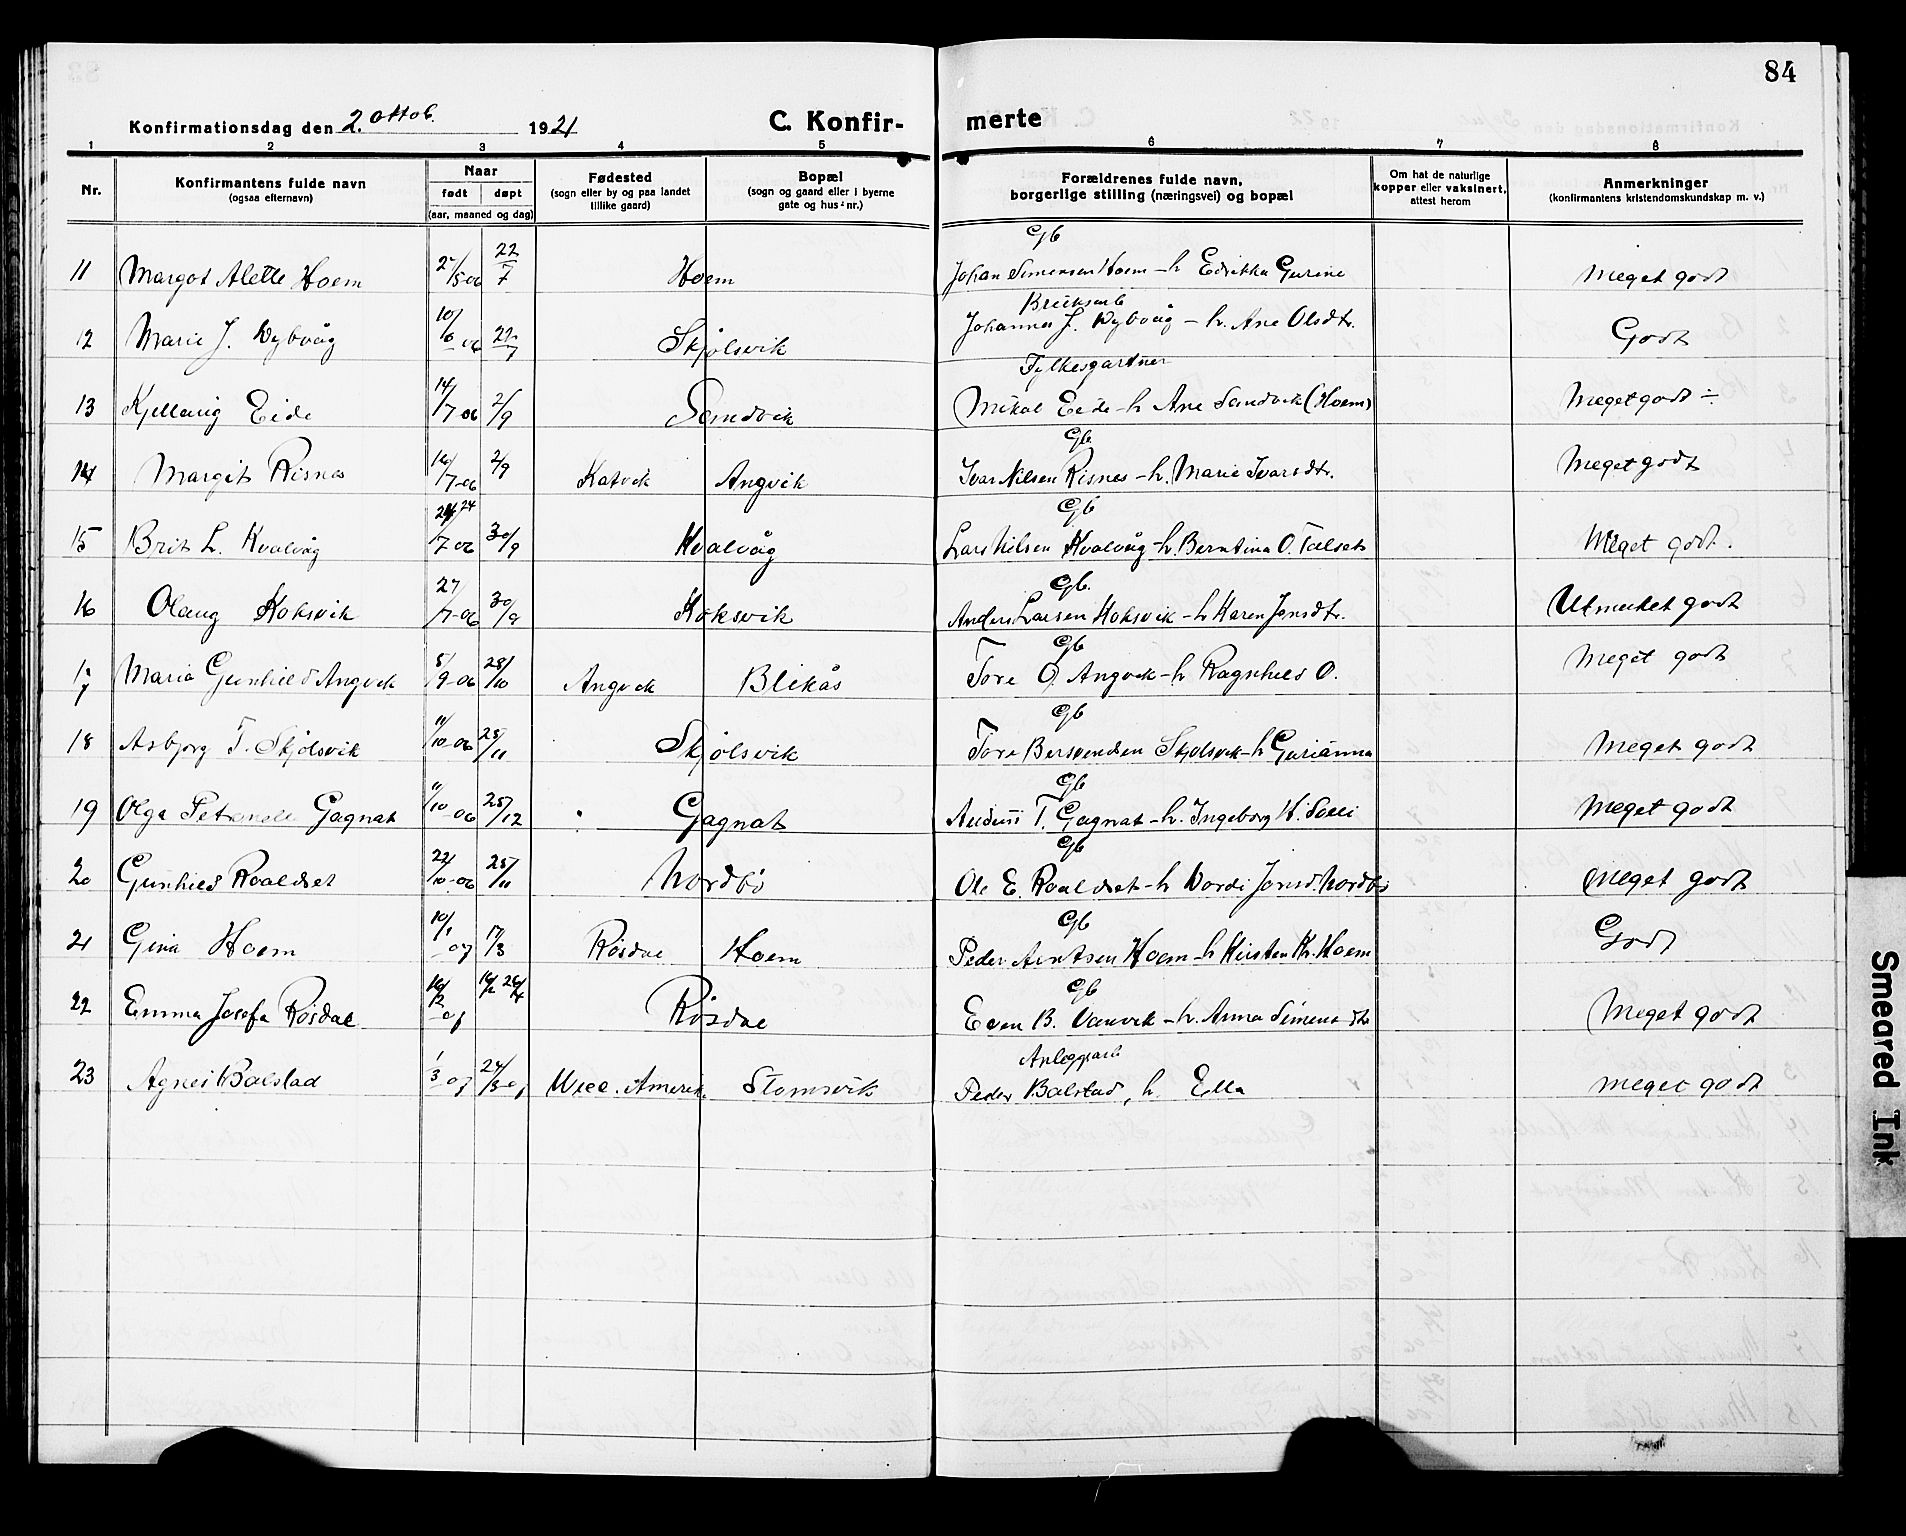 84
Konfirmationsdag den 2. Oktob. 1921
C. Konfirmerte
1 2 3 4 5 6 7 8
Nr.
Konfirmantens fulde navn
(ogsaa efternavn)
Naar
født døpt
(aar, maaned og dag)
Fødested
(sogn eller by og paa landet
tillike gaard)
Bopæl
(sogn og gaard eller i byerne
gate og hus nr.)
Forældrenes fulde navn,
borgerlige stilling (næringsvei) og bopæl
Om hat de naturlige
kopper eller vaksinert,
attest herom
Anmerkninger
(konfirmantens kristendomskundskap m. v.)
Gb
11 Margot Alette Hoem 2/5-06 22/7 Hoem Johan Simensen Hoem - h Edvikka Gurine Meget godt
12 Marie J. Dybvåg 10/6 06 22/7 Skjølsvik Johannes J. Dybvåg - h. Ane Olsdtr. Godt
Fylkesgartner
13 Kjellaug Eide 14/7 06 2/9 Sandvik Mikal Eide - h Ane Sandvik (Hoem) Meget godt ÷
Gb
14 Margit Risnes 16/7-06 2/9 Katvik Angvik Ivar Nilsen Risnes - h. Marie Ivarsdtr. Meget godt
Gb
15 Brit L. Kvalvåg 24/7 06 30/9 Kvalvåg Lars Nilsen Kvalvåg - h. Berntina O. Talset Meget godt.
Gb.
16 Olaug Koksvik 27/7-06 30/9 Koksvik Anders Larsen Koksvik - h Karen Jonsdtr. Utmerket godt
Gb
17 Maria Gunhild Angvik 5/9-06 28/10 Angvik Blikås Tore O. Angvik - h Ragnhild O. Meget godt
Gb
18 Asbjørg T. Skjølsvik 11/10-06 25/11 Skjølsvik Tore Bersvendsen Skjølsvik - h Gurianna Meget godt
Gb
19 Olga Petronele Gagnat 11/10-06 25/12 Gagnat T. Gagnat - h. Ingeborg H. Meget godt
Gb
20 Gunhild Roaldset 22/10-06 25/11 Nordbö Ole E. Roaldset - h Dordi Jonsd. Nordbö Meget godt
Gb
21 Gina Hoem 10/1 07 17/3 Røsdal Hoem Peder Arntsen Hoem - h Kirsten Kr. Hoem Godt
Gb
22 Emma Josefa Røsdal 16/12 Røsdal Even B. Vanvik - h. Anna Simensdtr Meget godt
Anleggsarb
23 Agnes Balstad 1/3 07 24/3-07 Amerik. Stomsvik Peder Balstad, h. Ella Meget godt
Smeared Ink